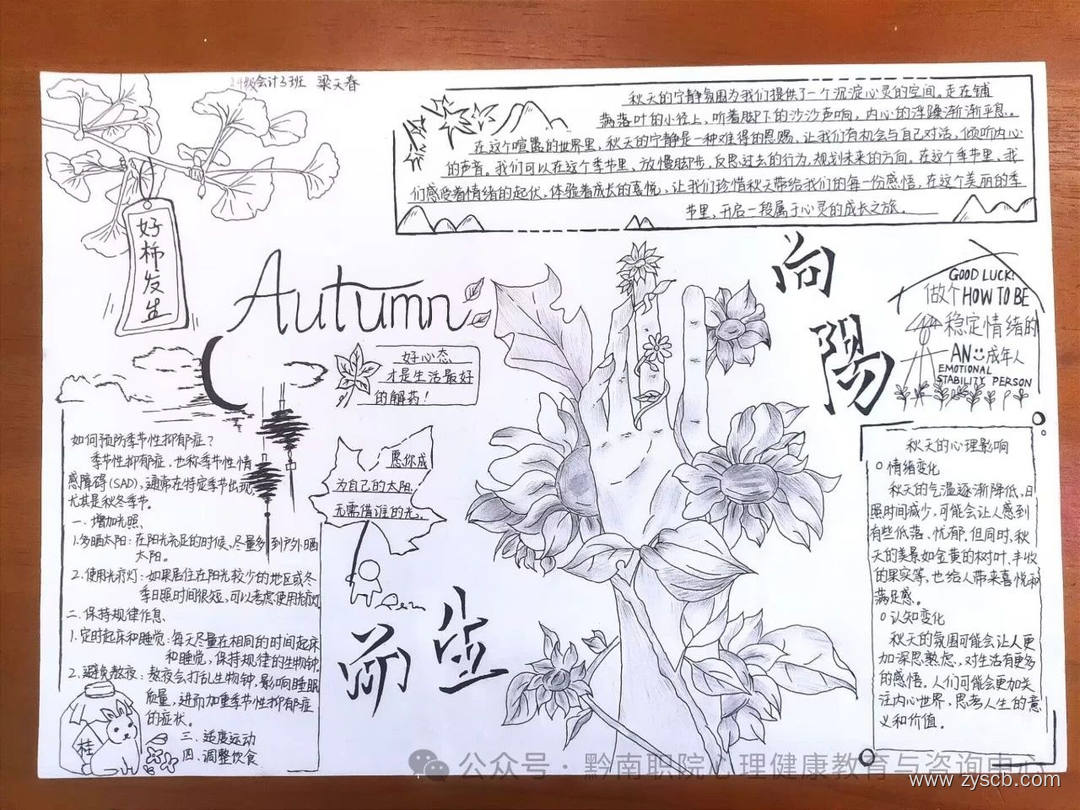 24级会计3班 梁天春
秋天的宁静氛围为我们提供了一个沉淀心灵的空间。走在铺
满落叶的小径上，听着脚下的沙沙声响，内心的浮躁渐渐平息。
在这个喧嚣的世界里，秋天的宁静是一种难得的恩赐，让我们有机会与自己对话，倾听内心
的声音。我们可以在这个季节里，放慢脚步，反思过去的行为，规划未来的方向。在这个季节里，我
们感受着情绪的起伏，体验着成长的喜悦，让我们珍惜秋天带给我们的每一份感悟，在这个美丽的季
节里，开启一段属于心灵的成长之旅。
好柿发生
Autumn
向阳
而生
GOOD LUCK!
做个HOW TO BE
稳定情绪的
AN 成年人
EMOTIONAL
STABILITY PERSON
好心态
才是生活最好
的解药！
愿你成
为自己的太阳，
无需借谁的光。
如何预防季节性抑郁症？
季节性抑郁症，也称季节性情
感障碍(SAD)，通常在特定季节出现，
尤其是秋冬季节。
一、增加光照、
1.多晒太阳：在阳光充足的时候，尽量多到户外晒
太阳。
2.使用光疗灯：如果居住在阳光较少的地区或冬
季日照时间很短，可以考虑使用光疗灯
二、保持规律作息、
1.定时起床和睡觉：每天尽量在相同的时间起床
和睡觉，保持规律的生物钟。
2.避免熬夜：熬夜会打乱生物钟，影响睡眠
质量，进而加重季节性抑郁症
的症状。
三、适度运动
四、调整饮食
桂
秋天的心理影响
情绪变化
秋天的气温逐渐降低，日
照时间减少，可能会让人感到
有些低落、忧郁，但同时，秋
天的美景如金黄的树叶、丰收
的果实等，也给人带来喜悦和
满足感。
认知变化
秋天的氛围可能会让人更
加深思熟虑，对生活有更多
的感悟。人们可能会更加关
注内心世界，思考人生的意
义和价值。
公众号·黔南职院心理健康教育与咨询中心
www.zyscb.com